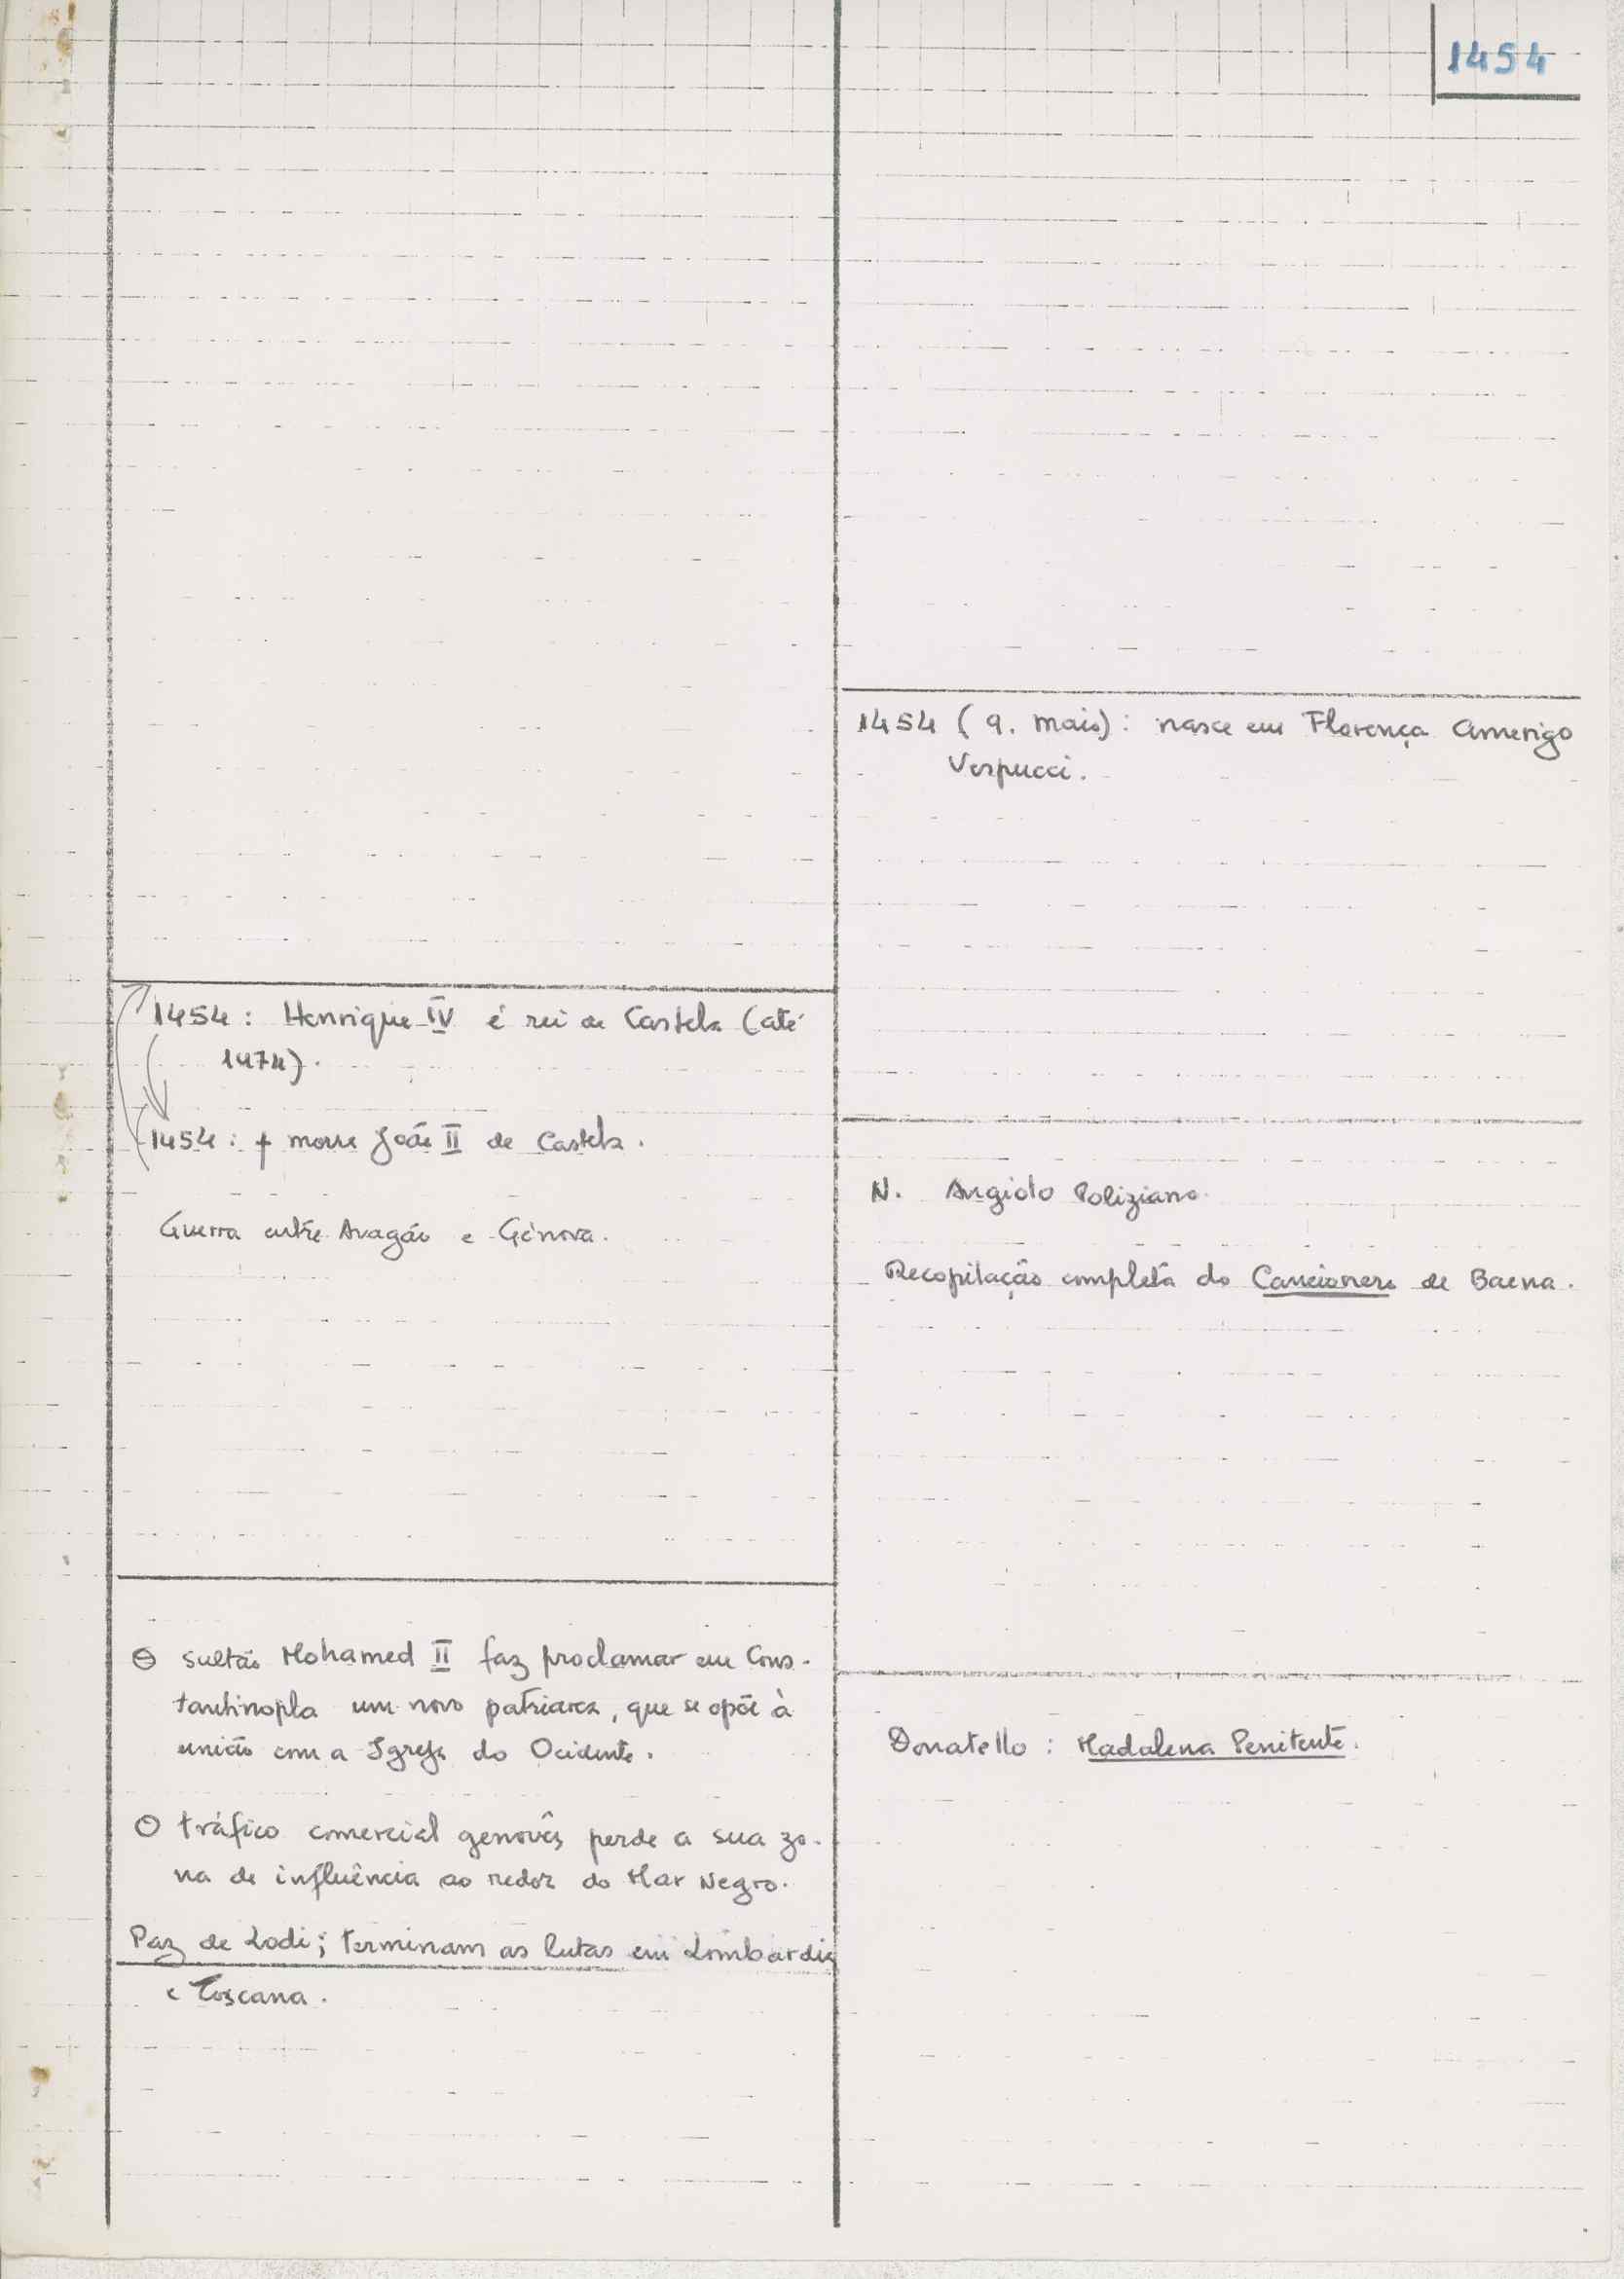 1454
1454: Henrique IV é rei de Castela (até
1474).
1454: † morre João II de Castela.
Guerra entre Aragão e Génova.
O sultão Mohamed II faz proclamar em Cons-
tantinopla um novo patriarca, que se opõe à
união com a Igreja do Ocidente.
O tráfico comercial genovês perde a sua zo-
na de influência ao redor do Mar Negro.
Paz de Lodi; terminam as lutas em Lombardia
e Toscana.
1454 (9. maio): nasce em Florença Amerigo
Vespucci.
N. Angiolo Poliziano.
Recopilação completa do Cancionero de Baena.
Donatello: Madalena Penitente.